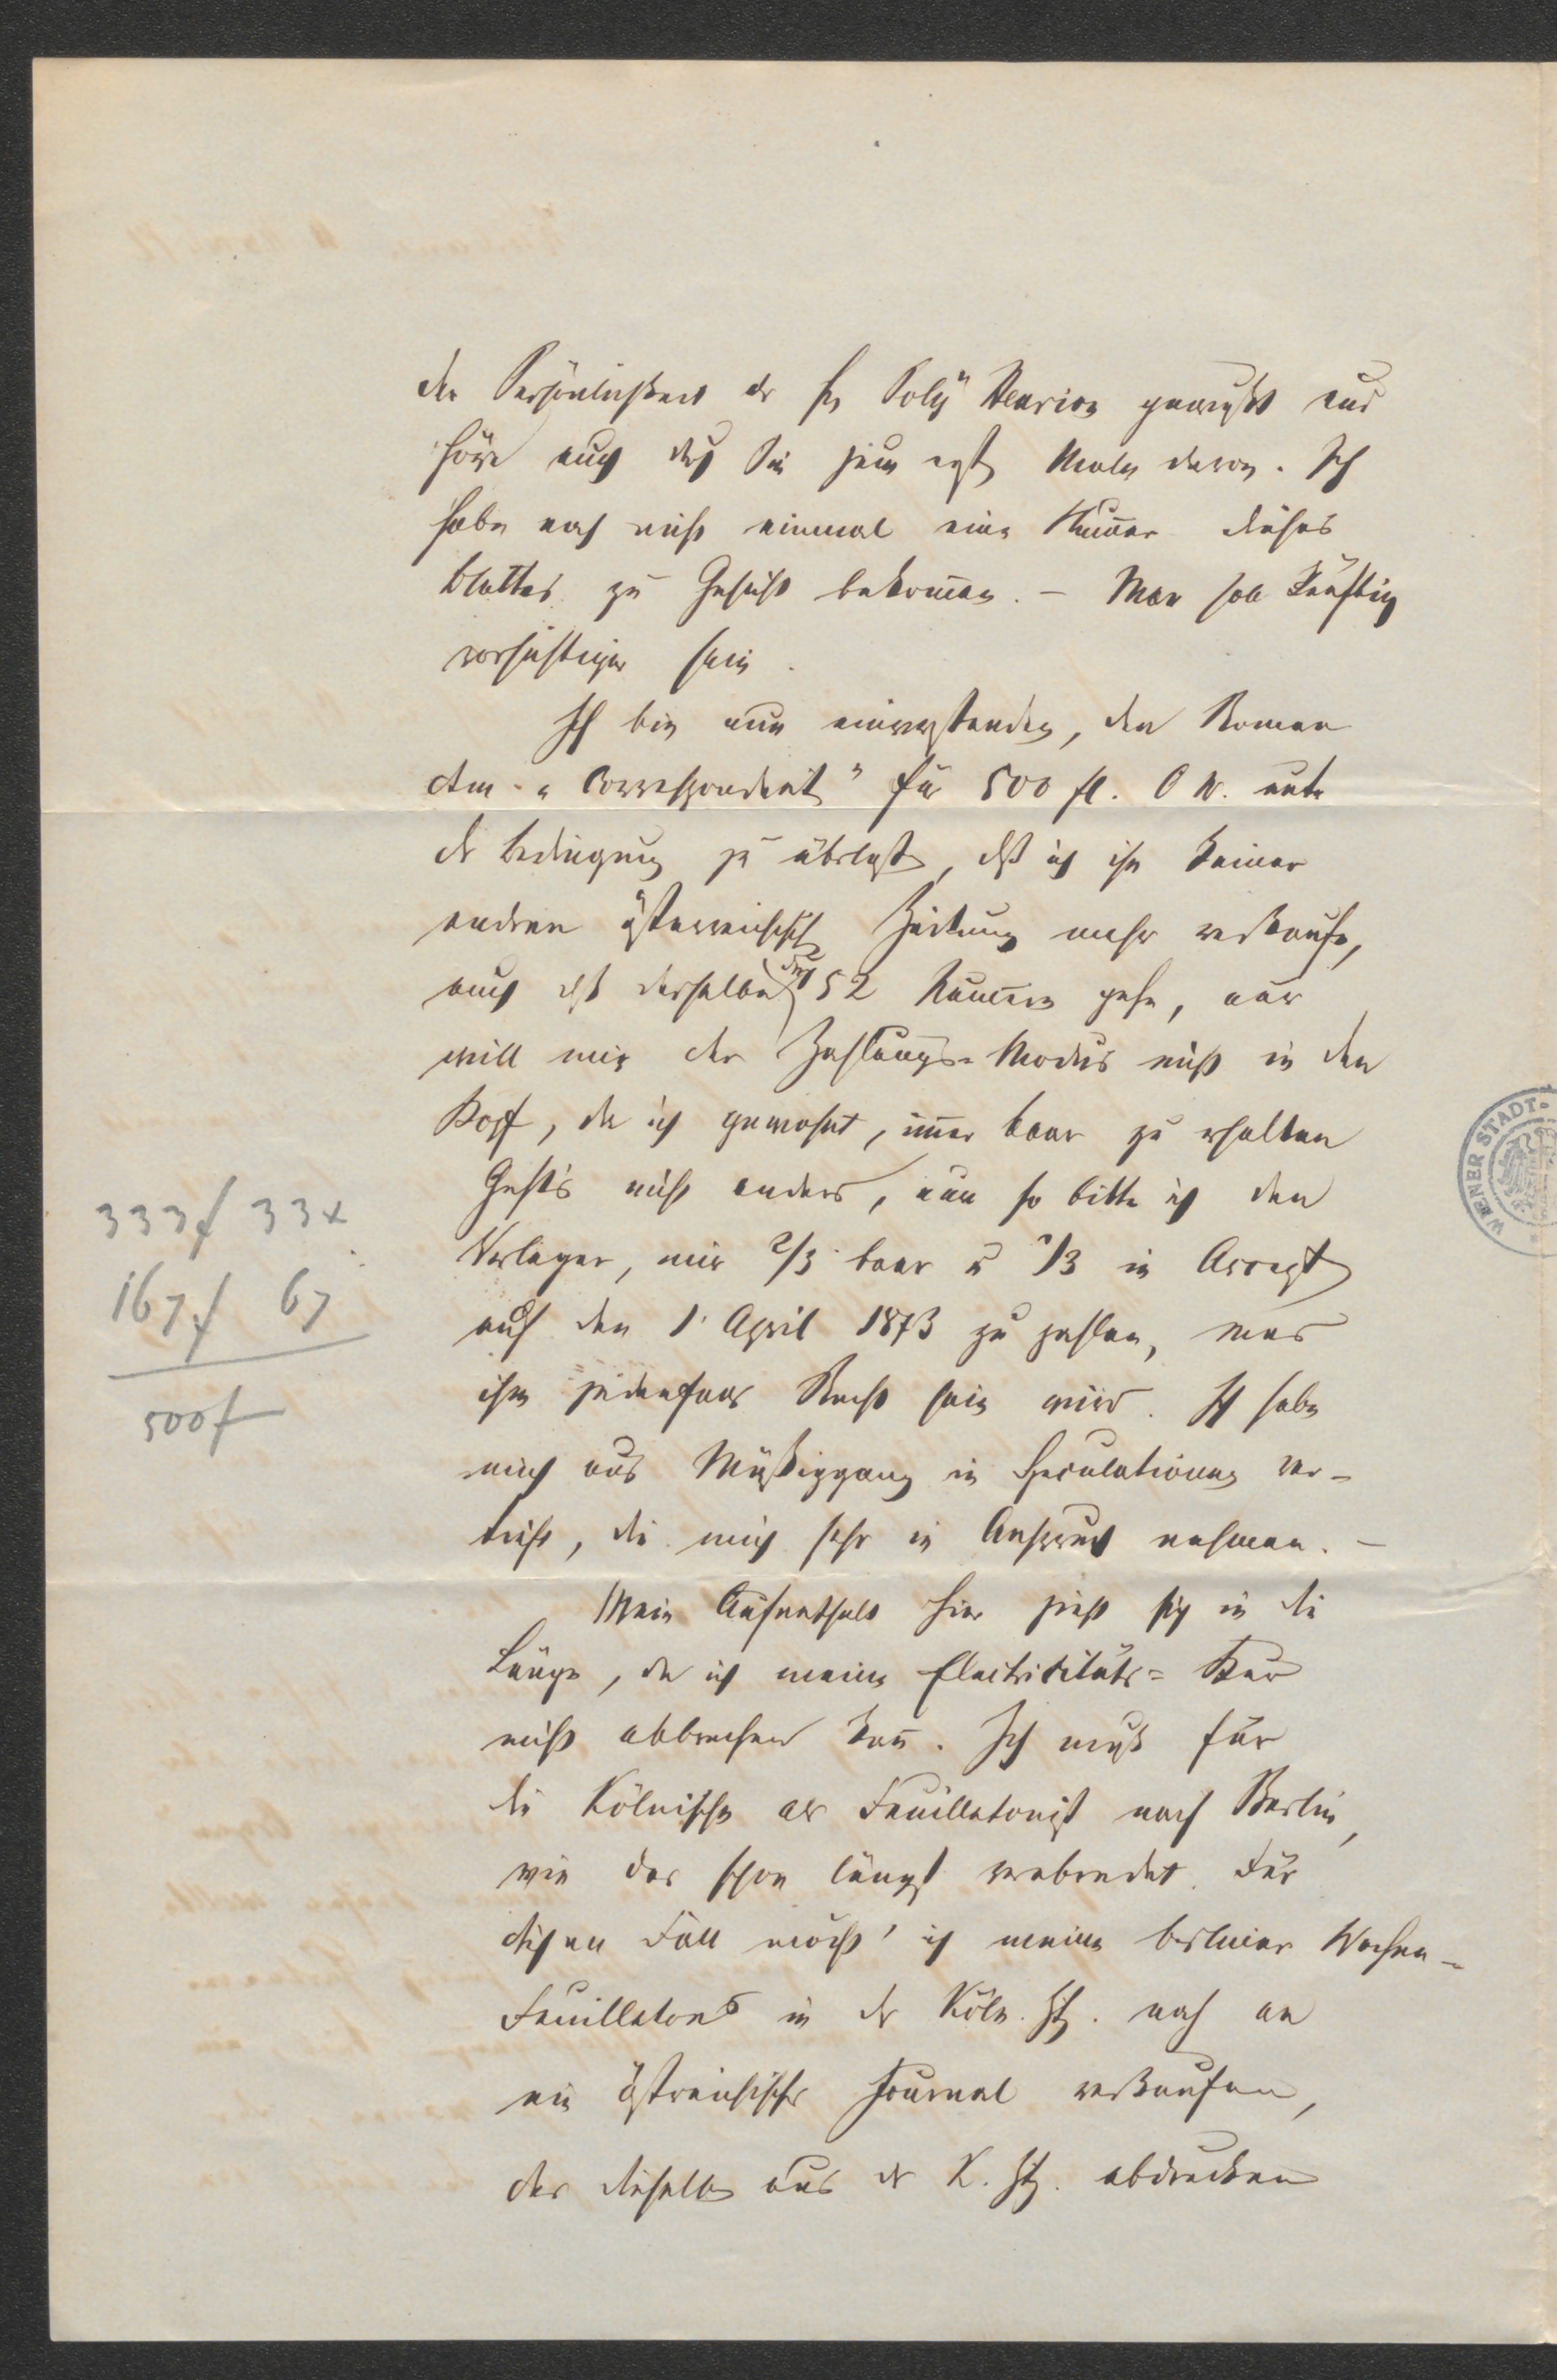 der Persönlichkeit der Fr Poly Henrion gewußt und
höre auch durch Sie zum erst Male davon. Ich
habe noch nicht einmal eine Num̅er dieses
Blattes zu Gesicht bekom̅en. – Man soll künftig
vorsichtiger sein.
Ich bin nun einverstanden, den Roman
dem „Correspondent" für 500 fl. O W. unter
der Bedingung zu überlassen, daß ich ihn keiner
andren österreichisch Zeitung mehr verkaufe,
auch daß derselbe durch 52 Num̅ern gehe, nur
will mir der Zahlungs-Modus nicht in den
Kopf, da ich gewohnt, im̅er baar zu erhalten
Geht's nicht anders, nun so bitte ich den
Verleger, mir 2/3 baar u 1/3 in Accept
auf den 1. April 1873 zu zahlen, was
ihm jedenfalls Recht sein wird. Ich habe
mich aus Müßiggang in Speculationen ver-
tieft, die mich sehr in Anspruch nehmen. –
Mein Aufenthalt hier zieht sich in die
Länge, da ich meine Electricitäts= Kur
nicht abbrechen kan̅. Ich muß für
die Kölnische als Feuilletonist nach Berlin,
wie das schon längst verabredet. Für
diesen Fall möcht' ich meine berliner Wochen-
Feuilletons in der Köln. Ztg. noch an
ein östreichisches Journal verkaufen,
das dieselben aus der K. Ztg. abdrucken
333f 33x
167f 67
500f
WIENER STADT-